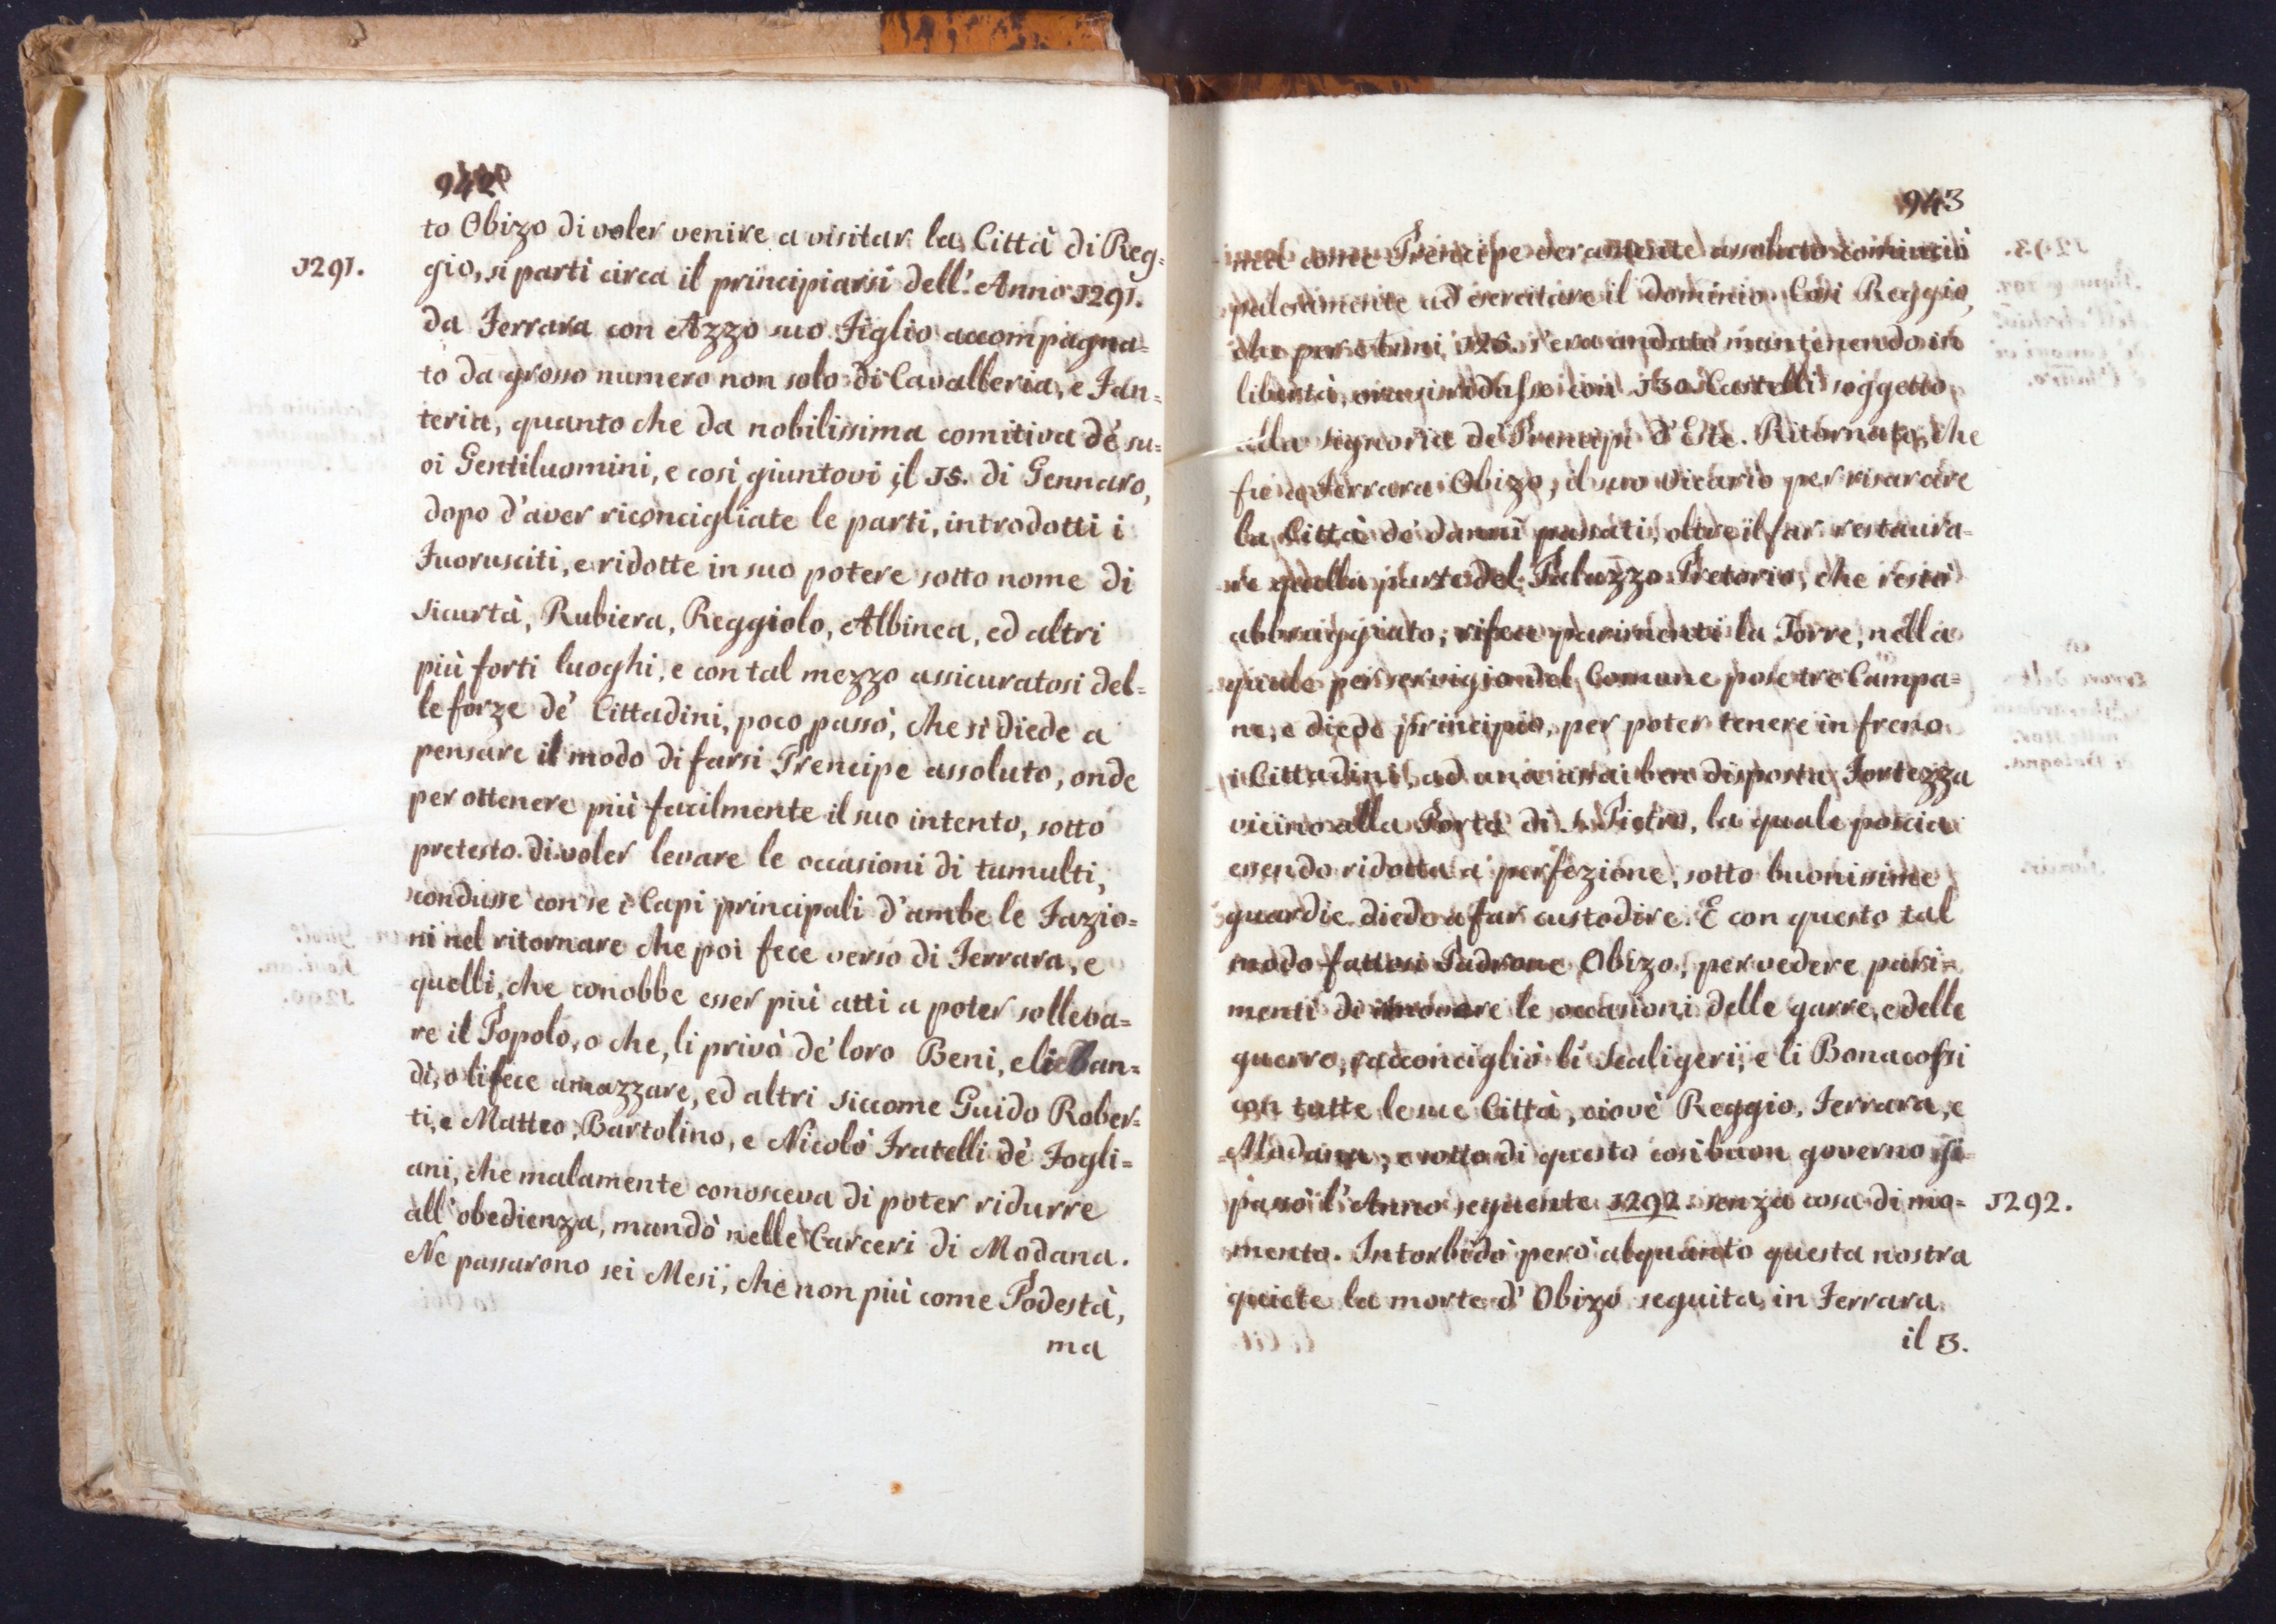 942
to Obizo di voler venire a visitar la Città di Reg=
1291.
gio, si partì circa il principiarsi dell'Anno 1291.
da Ferrara con Azzo suo Figlio accompagna=
to da grosso numero non solo di Cavalleria, e Fan=
teria, quanto che da nobilissima comitiva dè su=
oi Gentiluomini, e così giuntovi il 15. di Gennaro,
dopo d'aver riconcigliate le parti, introdotti i
Fuorusciti, e ridotte in suo potere sotto nome di
sicurtà, Rubiera, Reggiolo, Albinea, ed altri
più forti luoghi, e con tal mezzo assicuratosi del=
le forze dè Cittadini, poco passò, che si diede a
pensare il modo di farsi Prencipe assoluto, onde
per ottenere più facilmente il suo intento, sotto
pretesto di voler levare le occasioni di tumulti,
condusse con se i Capi principali d'ambe le Fazio=
ni nel ritornare che poi fece verso di Ferrara, e
quelli, che conobbe esser più atti a poter solleva=
re il Popolo, o che, li privò dè loro Beni, e li ban=
di, o li fece amazzare, ed altri siccome Guido Rober=
ti, e Matteo, Bartolino, e Nicolò Fratelli dè Fogli=
ani, che malamente conosceva di poter ridurre
all'obedienza, mandò nelle Carceri di Modana.
Ne passarono sei Mesi, che non più come Podestà,
ma
943
ma come Prencipe veramente assoluto cominciò
palesamente ad esercitare il dominio. Così Reggio,
che per anni 126. s'era andato mantenendo in
libertà, ora si ridusse con 130 Castelli soggetto
alla signoria dè Prencipi d'Este. Ritornato, che
fu a Ferrara Obizo, il suo Vicario per risarcire
la Città dè danni passati, oltre il far restaura=
re quella parte del Palazzo Pretorio, che restò
abbruggiato, rifece parimenti la Torre, nella
quale per servigio del Comune pose tre Campa=
ne, e diede principio, per poter tenere in freno
i Cittadini, ad una assai bene disposta Fortezza
vicino alla Porta di S. Pietro, la quale poscia
essendo ridotta a perfezione, sotto buonissime
guardie diede a far custodire. E con questo tal
modo fattosi Padrone Obizo, per vedere pari=
menti di rimovere le occasioni delle garre, e delle
guerre, racconcigliò li Scaligeri, e li Bonacossi
con tutte le sue Città, ciovè Reggio, Ferrara, e
Modana, e sotto di questo così buon governo si
passò l'Anno seguente 1292. senza cosa di mo=
1292.
mento. Intorbidò però alquanto questa nostra
quiete la morte d'Obizo seguita in Ferrara
il 13.